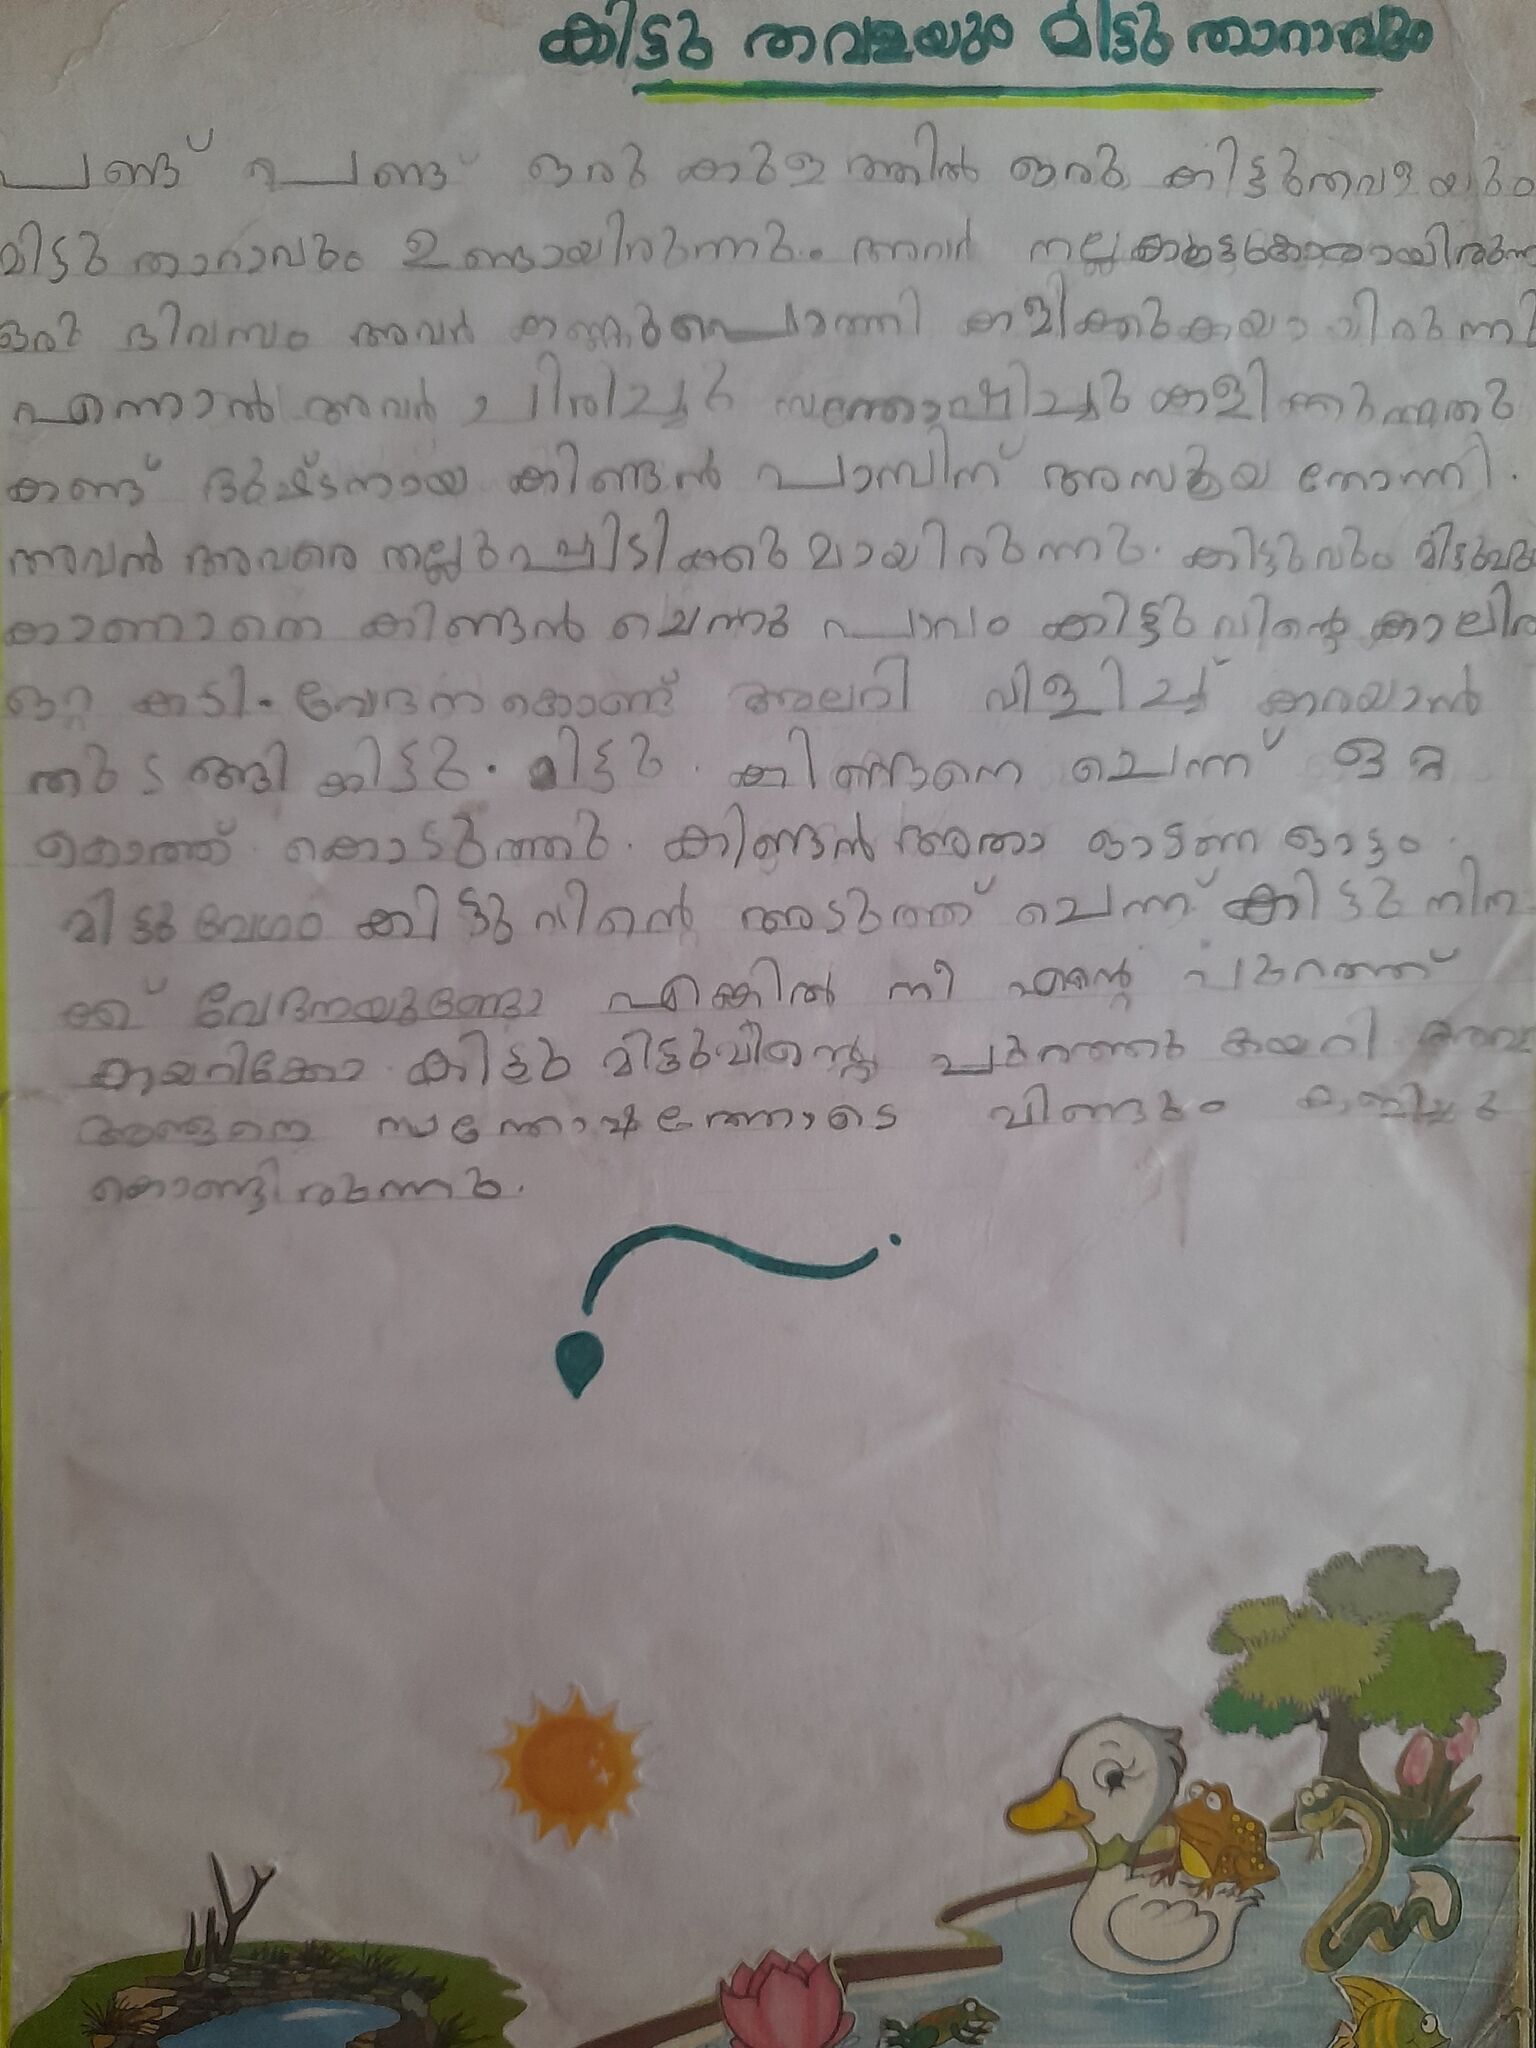 കിട്ടു തവളയും മിട്ടു താറാവും
പണ്ട് പണ്ട് ഒരു കുളത്തിൽ ഒരു കിട്ടുതവളയും
മിട്ടു താറാവും ഉണ്ടായിരുന്നു. അവർ നല്ല
ഒരു ദിവസം അവർ കണ്ണുപൊത്തി കളിക്കുകയായിരുന്നു
എന്നാൽ അവർ ചിരിച്ചു സന്തോഷിച്ചു കളിക്കുന്നതു
കണ്ട് ദുഷ്ടനായ കിണ്ടൻ പാമ്പിന് അസൂയ തോന്നി.
അവൻ അവരെ തല്ലുപ്പിടിക്കുമായിരുന്നു. കിട്ടുവും മിട്ടുവും
കാണാതെ കിണ്ടൻ ചെന്നു പാവം കിട്ടുവിന്റെ കാലിൽ
ഒറ്റ കടി. വേദനകൊണ്ട് അലറി വിളിച്ച് കരയാൻ
തുടങ്ങി കിട്ടു. മിട്ടു. കിണ്ടാനെ ചെന്ന് ഒറ്റ
കൊത്ത് കൊടുത്തു. കിണ്ടൻ അതാ ഓടണ ഓട്ടം.
മിട്ടു വേഗം കിട്ടുവിന്റെ അടുത്ത് ചെന്ന് കിട്ടു നിന
ക്ക് വേദനയുണ്ടോ എങ്കിൽ നീ എന്റെ പുറത്ത്
കയറിക്കോ. കിട്ടു മിട്ടുവിന്റെ പുറത്തു കയറി അവർ
അങ്ങനെ സന്തോഷത്തോടെ വീണ്ടും കളിച്ചു
കൊണ്ടിരുന്നു.